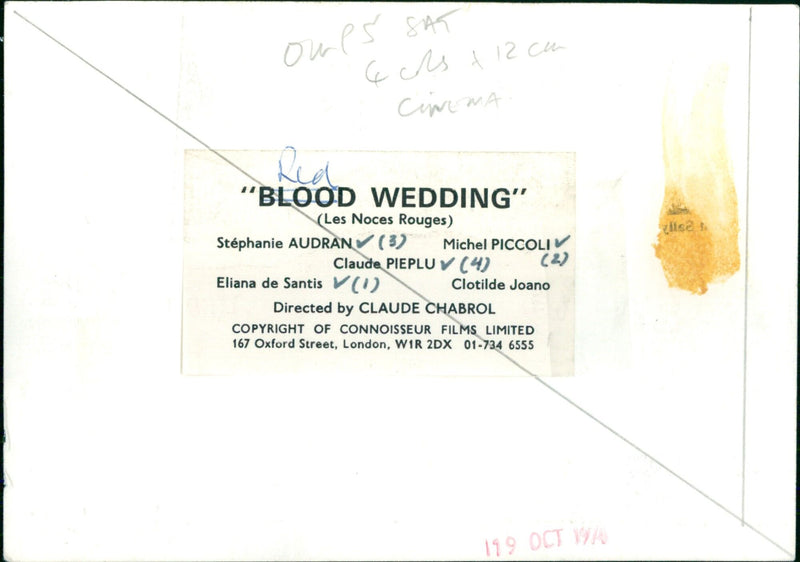 P5 SAT
4 cols x 12 cm
CINEMA
Red
"BLOOD WEDDING"
(Les Noces Rouges)
Stéphanie AUDRAN ✓ (3) Michel PICCOLI ✓ (2)
Claude PIEPLU ✓ (4)
Eliana de Santis ✓ (1) Clotilde Joano
Directed by CLAUDE CHABROL
COPYRIGHT OF CONNOISSEUR FILMS LIMITED
167 Oxford Street, London, W1R 2DX 01-734 6555
Sally
19 OCT